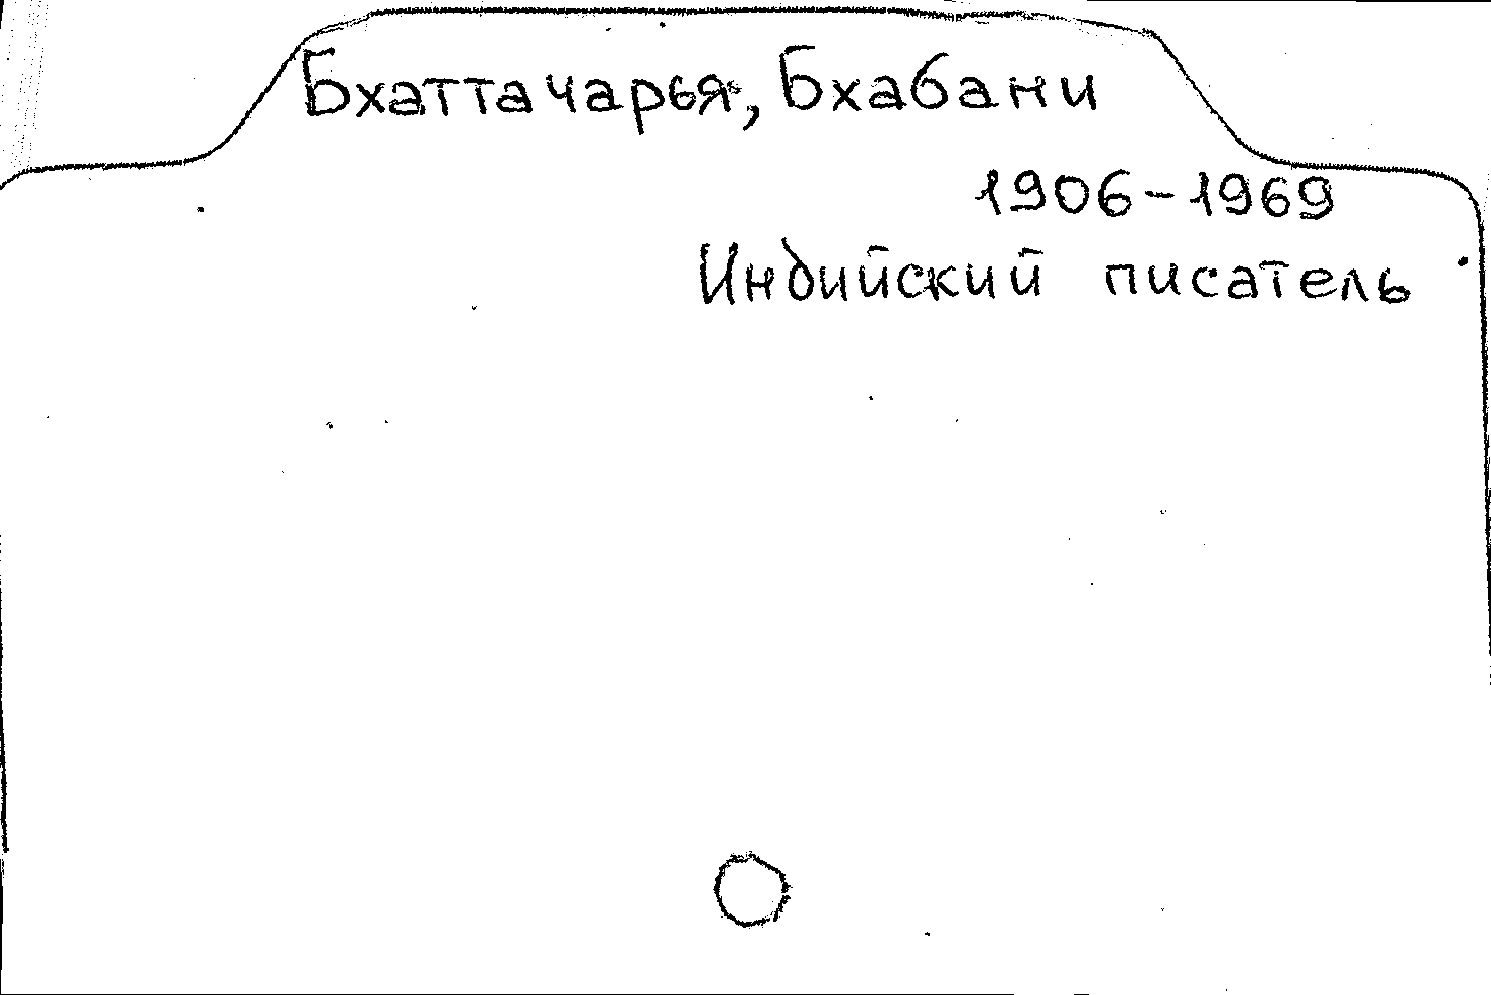 Бхаттачарья, Бхабани
1906-1969
Индийский писатель